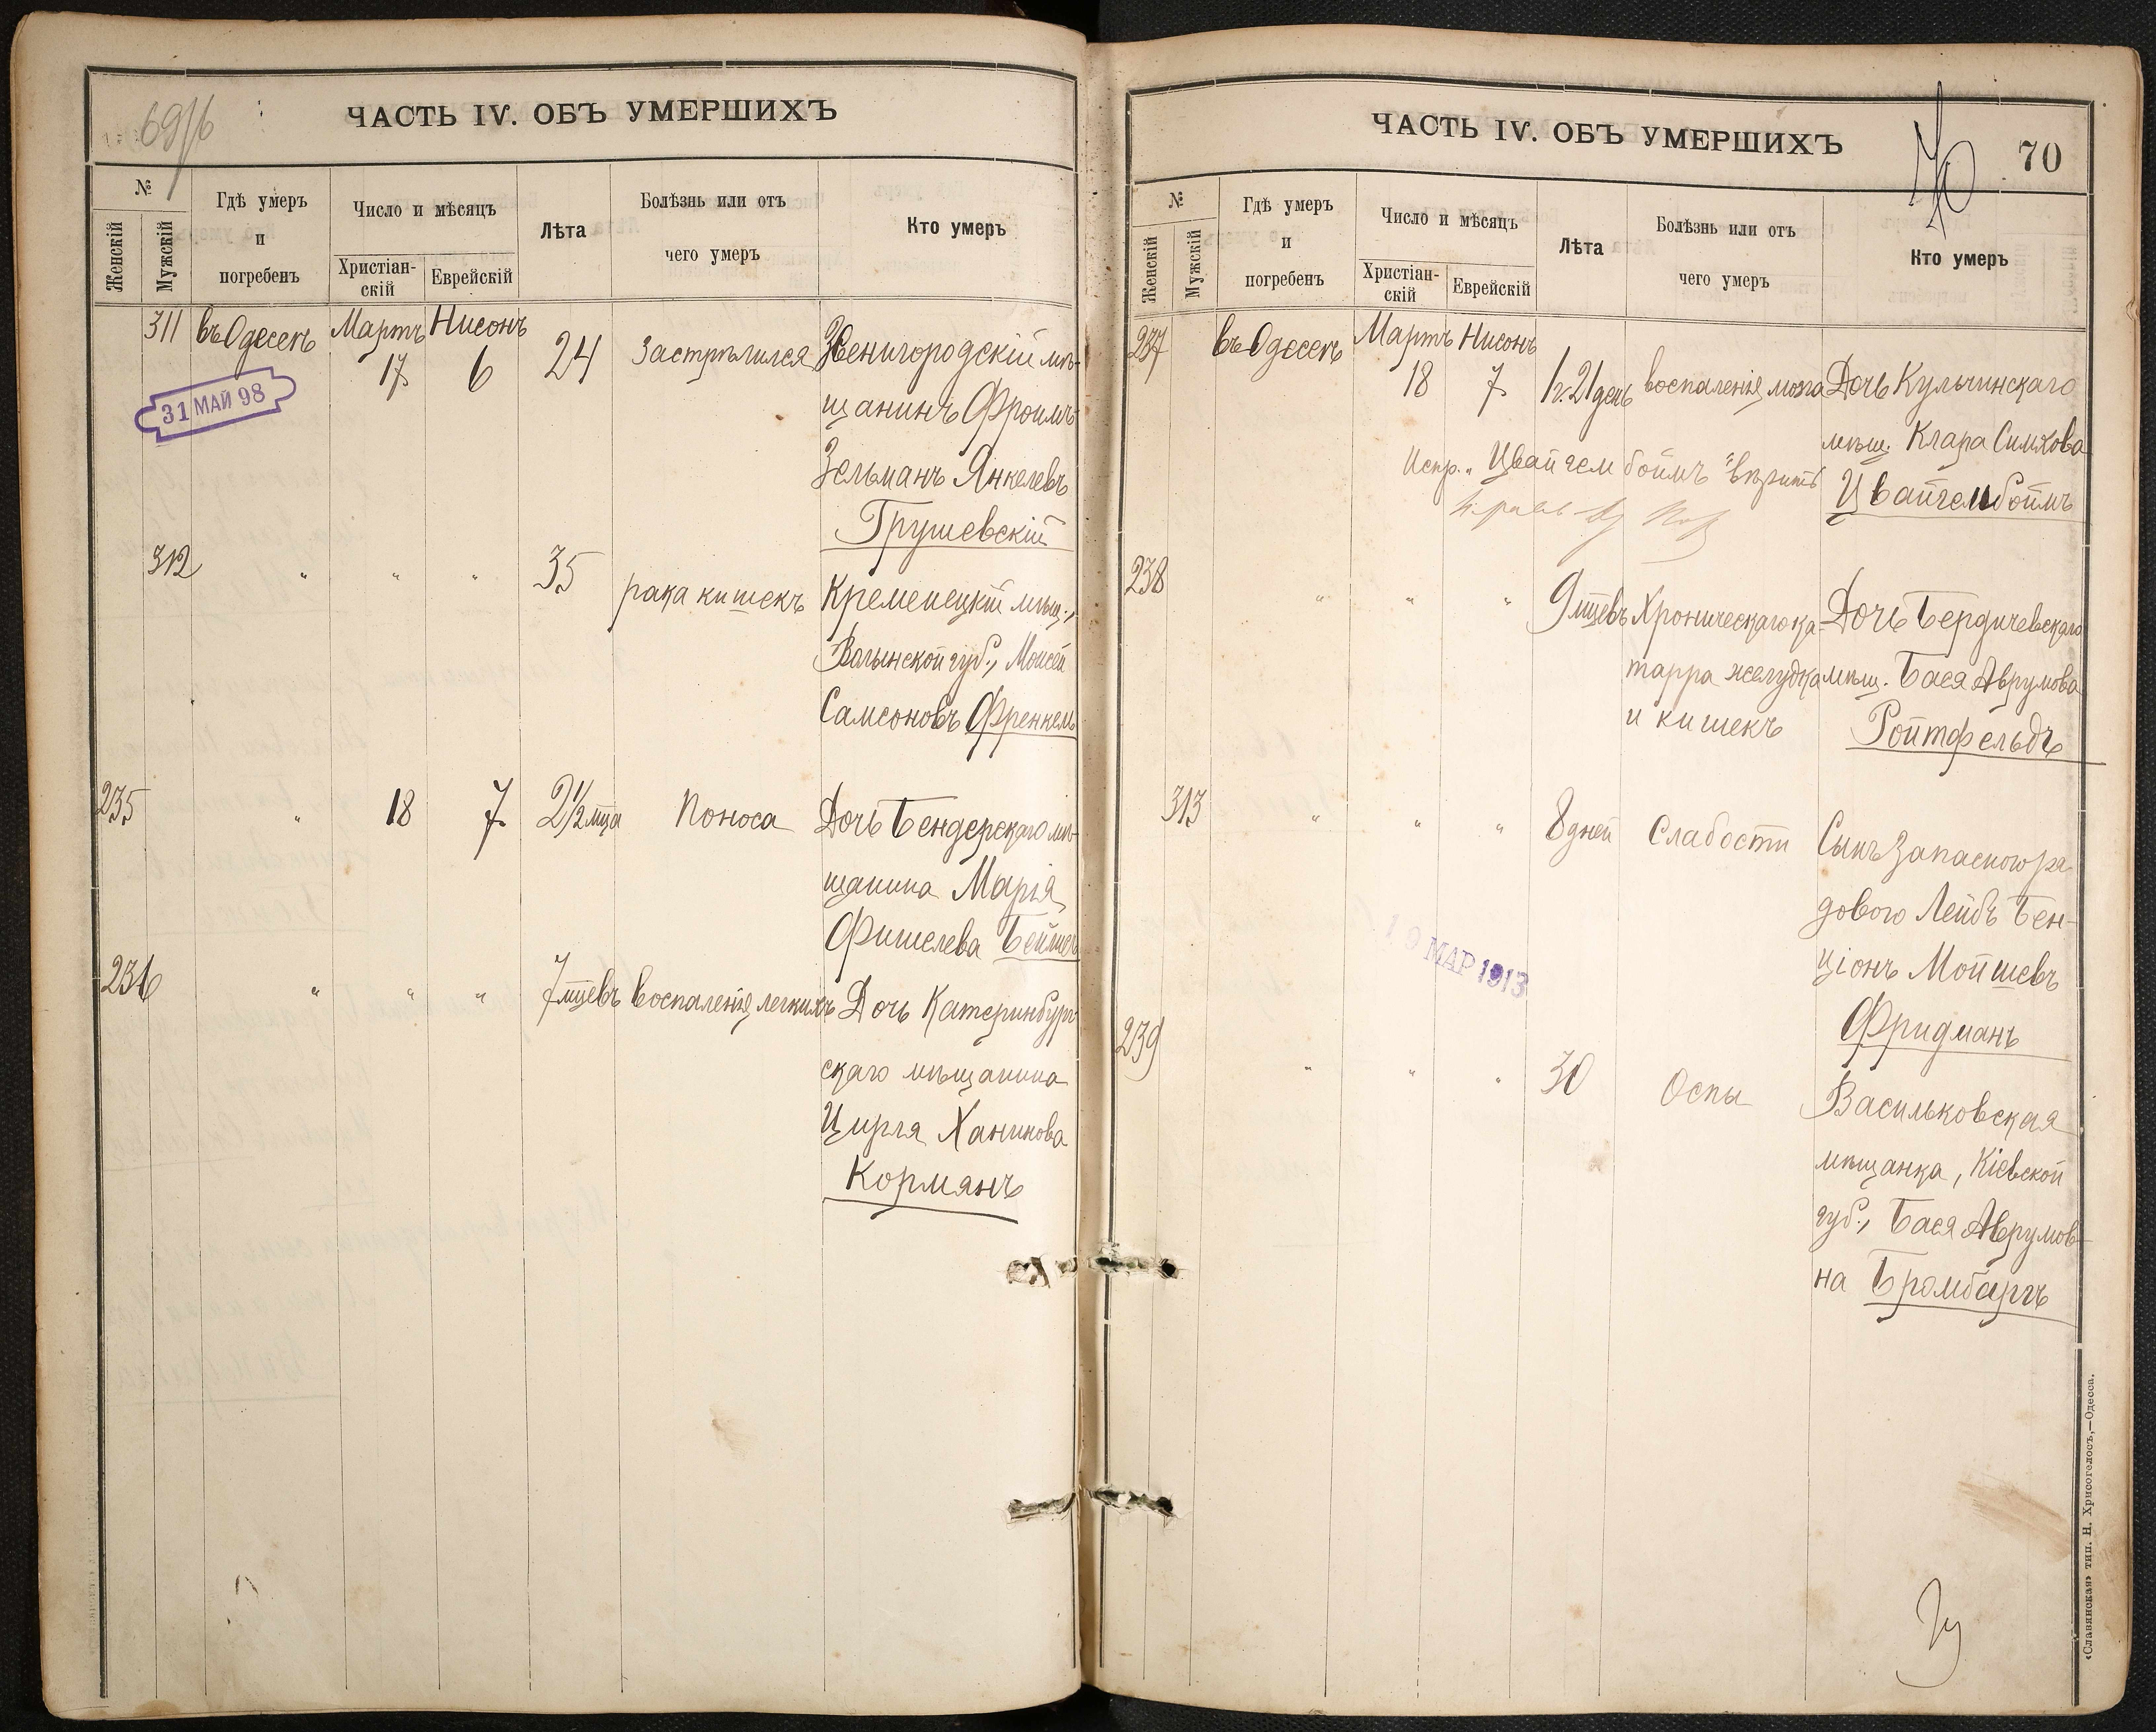 69/б
ЧАСТЬ IV. ОБЪ УМЕРШИХЪ
№
Женскій
Мужскій
Гдѣ умеръ
и
погребенъ
Число и мѣсяцъ
Христіан-
скій
Еврейскій
Лѣта
Болѣзнь или отъ
чего умеръ
Кто умеръ
311 въ Одессѣ Мартъ Нисонъ
17 6 24 Застрѣлился Звенигородскій мѣ-
щанинъ Фроимъ
Зельманъ Янкелевъ
Грушевскій
31 МАЙ 98
312 " " " 35 рака кишекъ Кременецкій мѣщ.,
Волынской губ., Моисей
Самсоновъ Френкель
235 " 18 7 2½ мца Поноса Дочь Бендерскаго мѣ-
щанина Марія
Фишелева
236 " " " 7 мцевъ воспаленія легкихъ Дочь Катеринбург-
скаго мѣщанина
Цирля Ханинова
Корманъ
ЧАСТЬ IV. ОБЪ УМЕРШИХЪ
70
70
№
Женскій
Мужскій
Гдѣ умеръ
и
погребенъ
Число и мѣсяцъ
Христіан-
скій
Еврейскій
Лѣта
Болѣзнь или отъ
чего умеръ
Кто умеръ
237 въ Одессѣ Мартъ Нисонъ
18 7 1 г. 21 день воспаленія мозга Дочь Кульчинскаго
мѣщ. Клара Симхова
Цвайгенбоймъ
Испр. „Цвайгенбоймъ" вѣрить
238 " " " 9 мцевъ Хроническаго ка- Дочь Бердичевскаго
тарра желудка мѣщ. Бася Аврумова
и кишекъ Ройтфельдъ
313 " " " 8 дней Слабости Сынъ запаснаго ря-
дового Лейбъ Бен-
ціонъ Мойшевъ
Фридманъ
19 МАР 1913
239 " " " 30 Оспы Васильковская
мѣщанка, Кіевской
губ., Бася Аврумов-
на Бромбергъ
«Славянская» тип. Н. Хрисогелосъ,—Одесса.